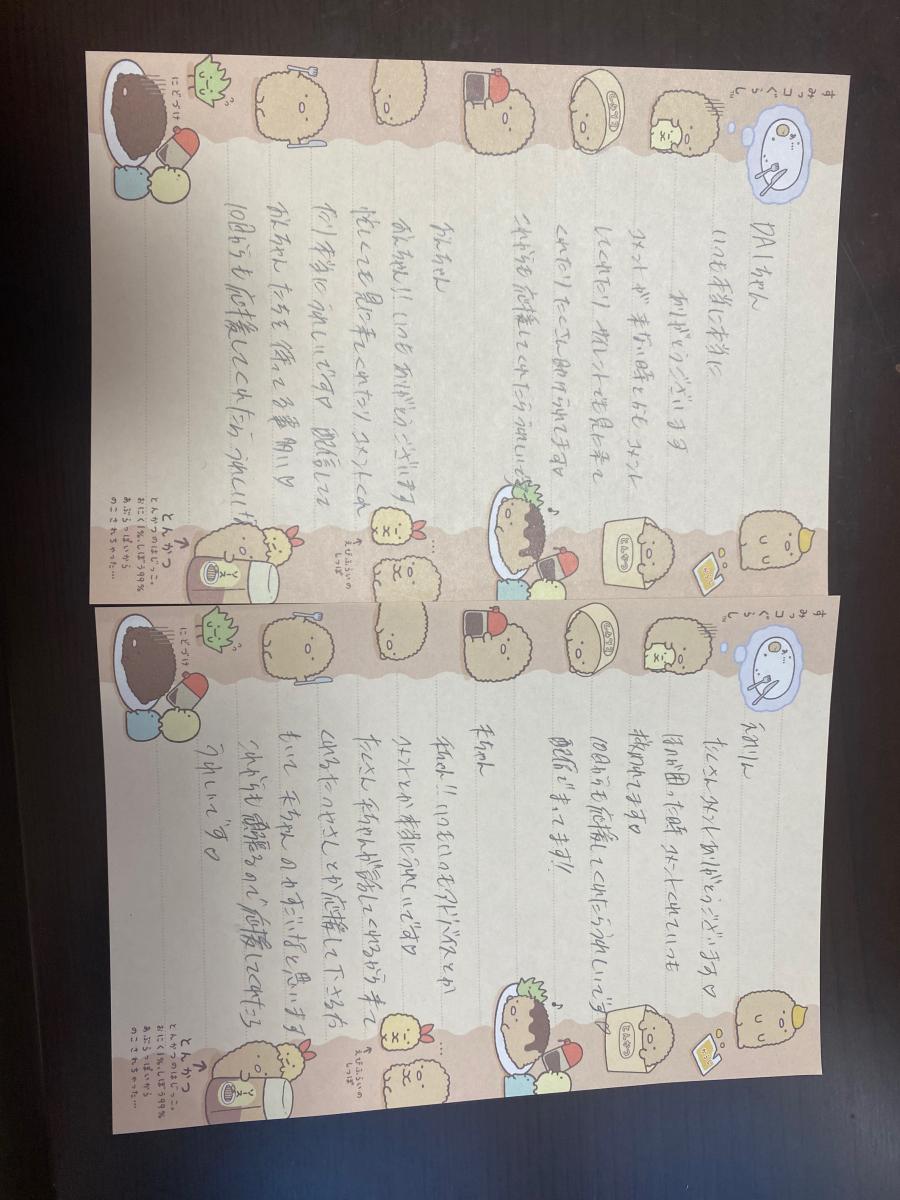 すみっコぐらし
あ…
DAIちゃん
いつも本当に本当に
ありがとうございます
コメントが来ない時とかもコメント
してくれたり でも見に来て
くれたりたくさん助けられてます♡
これからも応援してくれたらうれしいです
おんちゃん
おんちゃん!! いつもありがとうございます
忙しくても見に来てくれたり コメントくれ
たり本当にうれしいです♡ 配信してて
おんちゃんたちを待ってる事多い♡
10日からも応援してくれたらうれしいです
にどづけ
とんかつ
とんかつ
えびふらいのしっぽ
とんかつのはじっこ。
おにく1%、しぼう99%
あぶらっぽいから
のこされちゃった…
すみっコぐらし
あ…
たくさんコメントありがとうございます♡
困った時コメントくれていつも
救われてます♡
10日からも応援してくれたらうれしいです♡
配信でまってます!!
ちゃん
ちゃん!! いつもいつもアドバイスとか
コメントとか本当にうれしいです♡
たくさん ちゃんが話してくれるから来て
くれるたつやさんとか応援して下さる方
もいて ちゃん すごいなと思います
これからも頑張るので応援してくれたら
うれしいです♡
にどづけ
とんかつ
とんかつ
えびふらいのしっぽ
とんかつのはじっこ。
おにく1%、しぼう99%
あぶらっぽいから
のこされちゃった…